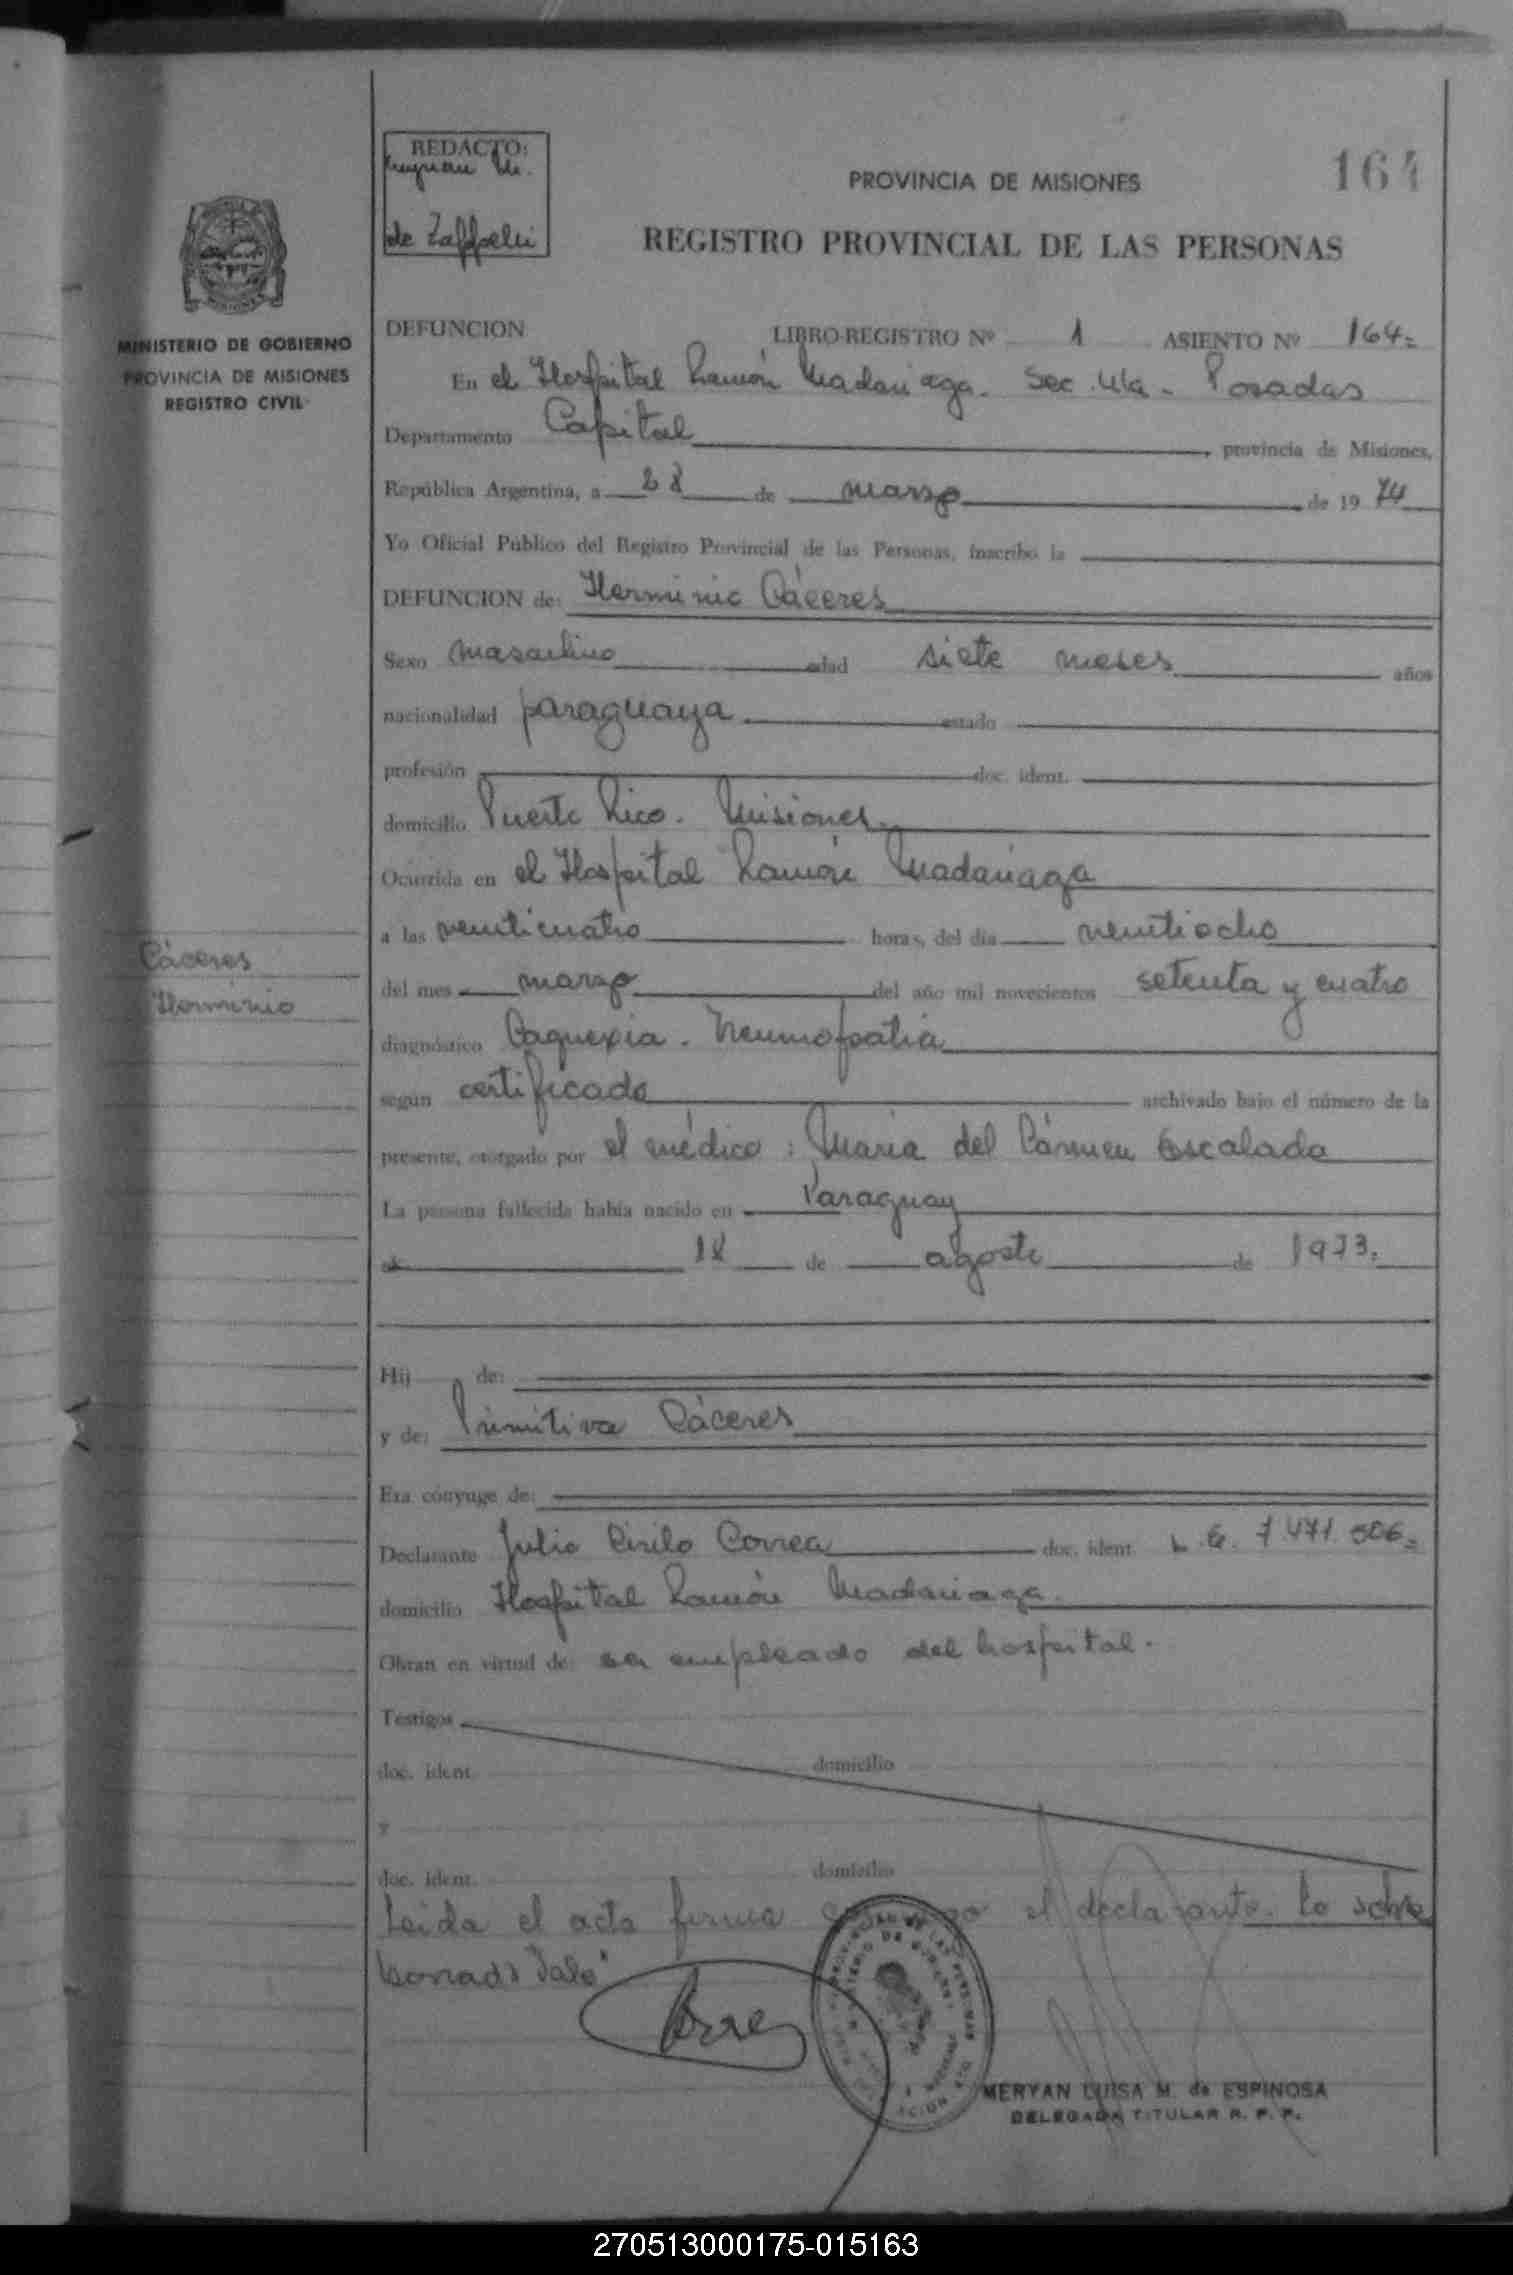 REDACTO:
de Zaffoelli
164
PROVINCIA DE MISIONES
REGISTRO PROVINCIAL DE LAS PERSONAS
MINISTERIO DE GOBIERNO
PROVINCIA DE MISIONES
REGISTRO CIVIL
DEFUNCION LIBRO-REGISTRO Nº 1 ASIENTO Nº 164=
En el Hospital Ramón Madariaga. Sec. 4ta - Posadas
Departamento Capital, provincia de Misiones,
República Argentina, a 28 de marzo de 1974
Yo Oficial Público del Registro Provincial de las Personas, inscribo la
DEFUNCION de: Herminio Cáceres
Sexo masculino edad siete meses años
nacionalidad paraguaya estado
profesión doc. ident.
domicilio Puerto Rico. Misiones.
Ocurrida en el Hospital Ramón Madariaga
a las veinticuatro horas, del día veintiocho
del mes marzo del año mil novecientos setenta y cuatro
Cáceres
Herminio
diagnóstico Caquexia. Neumopatia
según certificado archivado bajo el número de la
presente, otorgado por el médico: María del Cármen Escalada
La persona fallecida había nacido en Paraguay
el 18 de agosto de 1973.
Hij de:
y de: Primitiva Cáceres
Era cónyuge de:
Declarante Julio Cirilo Correa doc. ident. L.E. 7.471.506=
domicilio Hospital Ramón Madariaga.
Obran en virtud de: ser empleado del hospital.
Testigos
doc. ident. domicilio
y
doc. ident. domicilio
Leida el acta firma el declarante. Lo sobre
borrado Vale
MERYAN LUISA M. de ESPINOSA
DELEGADA TITULAR R. P. P.
270513000175-015163